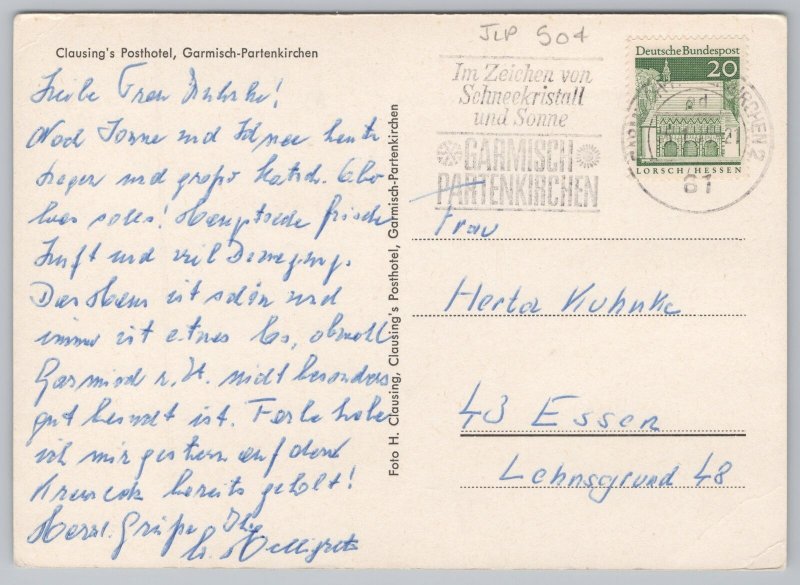 Clausing's Posthotel, Garmisch-Partenkirchen
Liebe Frau Kuhnke!
Nach Sonne und Schnee heute
Regen und großer Matsch. Aber
was solls! Hauptsache frische
Luft und viel Bewegung.
Das Haus ist schön und
immer ist etwas los, obwohl
Garmisch z. Zt. nicht besonders
gut besucht ist. Farbe habe
ich mir gestern auf dem
Kreuzeck bereits geholt!
Herzl. Grüße Ihr
Foto H. Clausing, Clausing's Posthotel, Garmisch-Partenkirchen
JLP 504
Im Zeichen von
Schneekristall
und Sonne
GARMISCH
PARTENKIRCHEN
Deutsche Bundespost
20
LORSCH/HESSEN
KIRCHEN 2
Frau
Herta Kuhnke
43 Essen
Lehnsgrund 48